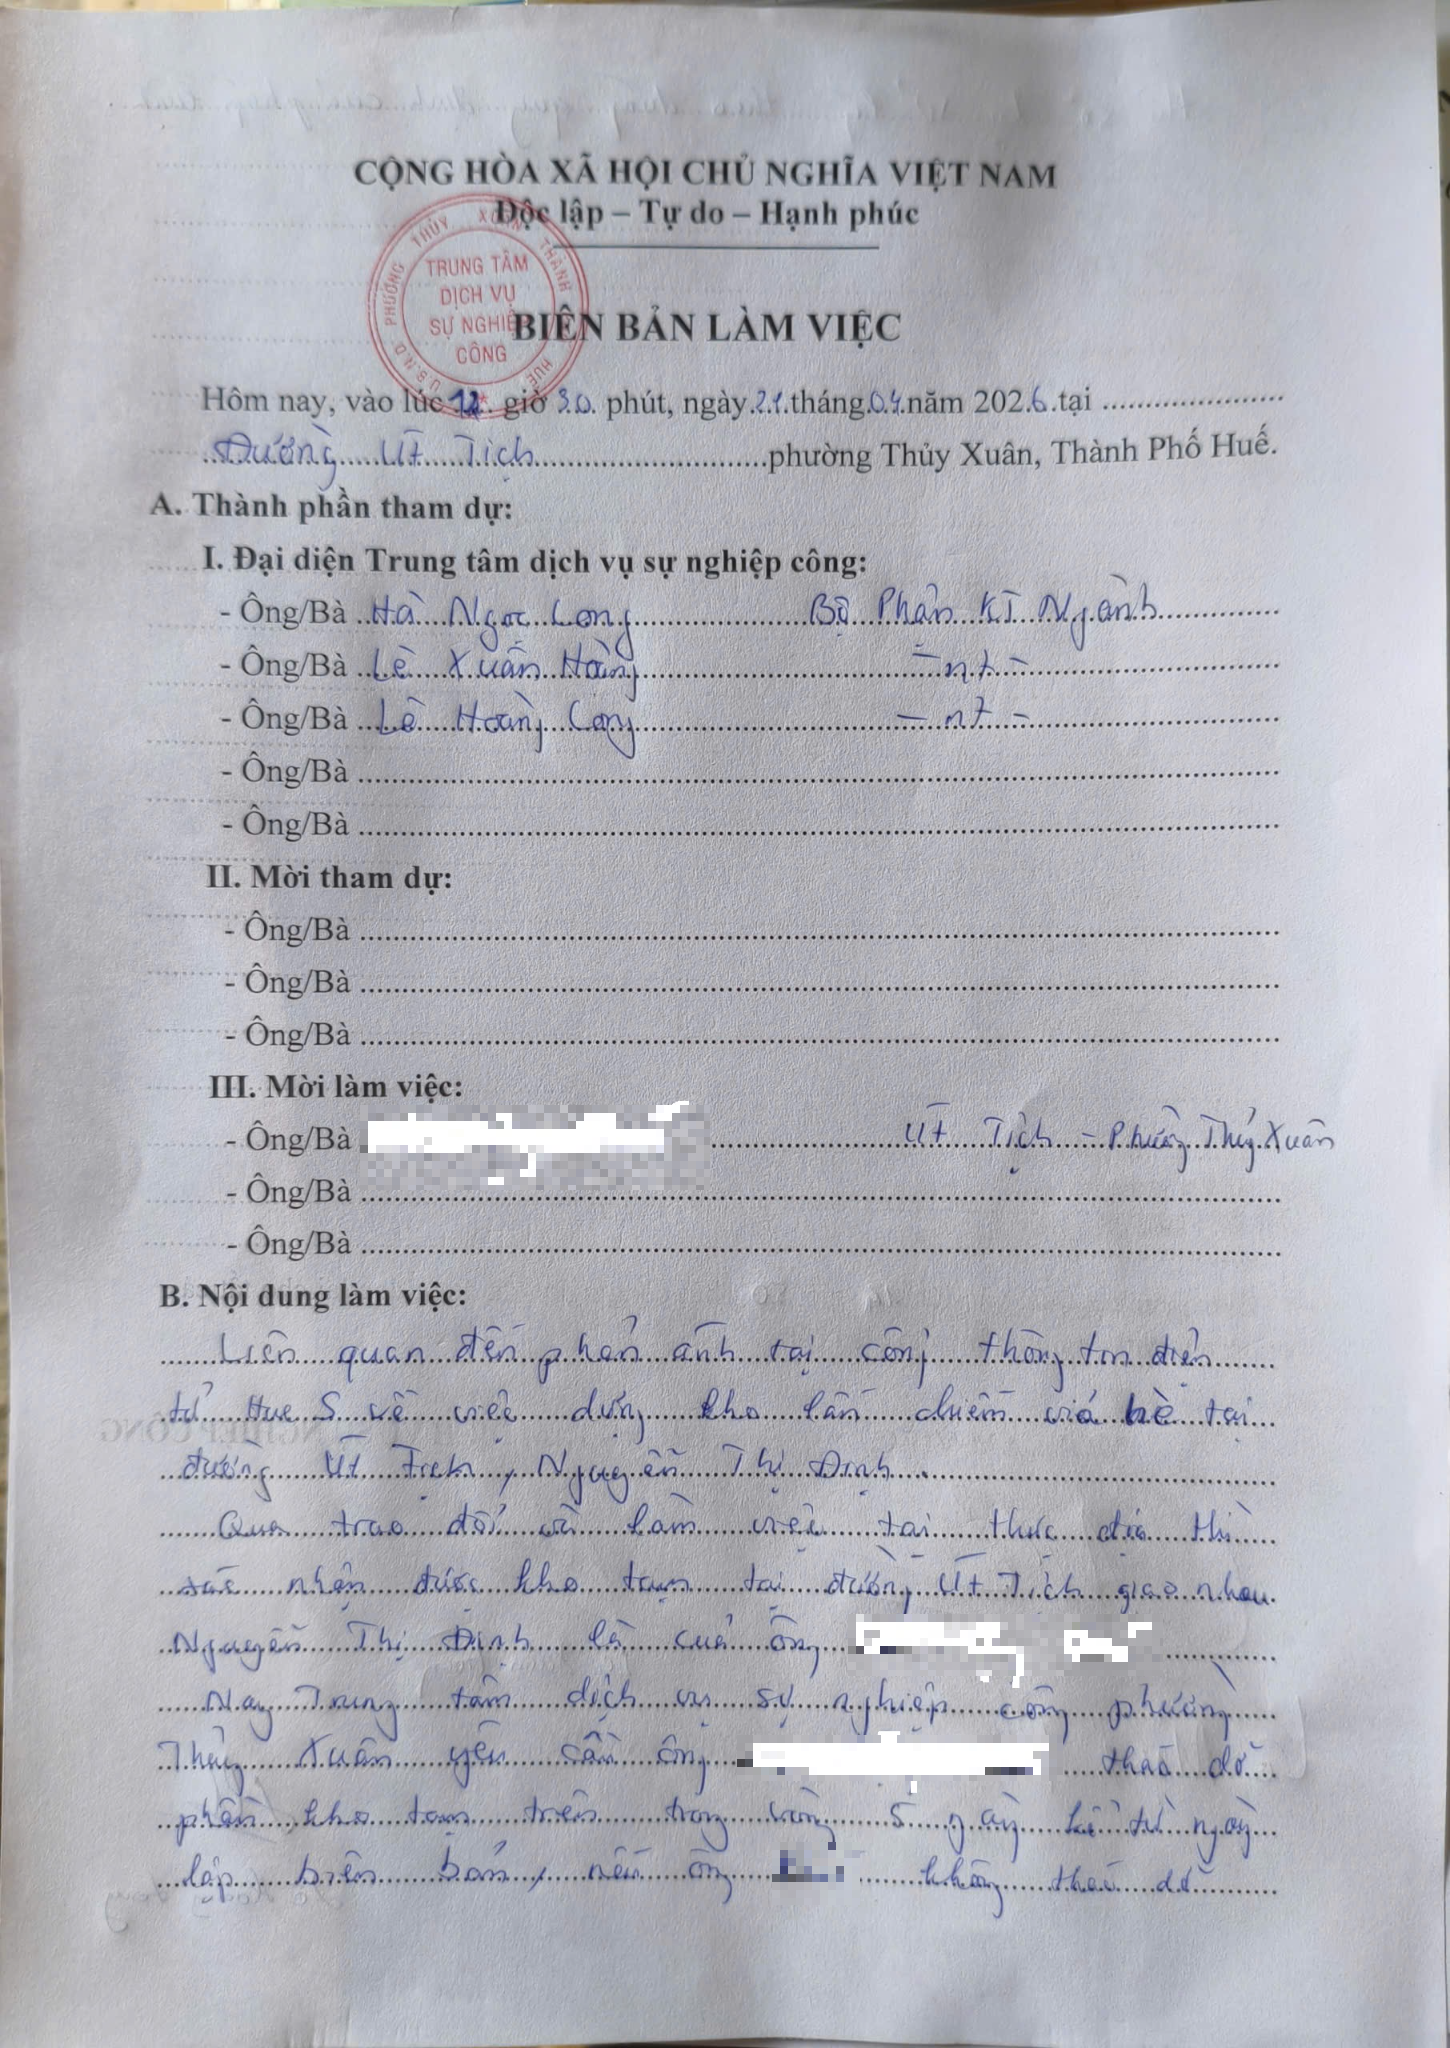 CỘNG HÒA XÃ HỘI CHỦ NGHĨA VIỆT NAM
Độc lập – Tự do – Hạnh phúc
U.B.N.D PHƯỜNG THỦY XUÂN THÀNH HUẾ
TRUNG TÂM
DỊCH VỤ
SỰ NGHIỆP
CÔNG
BIÊN BẢN LÀM VIỆC
Hôm nay, vào lúc giờ 30 phút, ngày 21 tháng 04 năm 2026 tại
Đường Út Tịch phường Thủy Xuân, Thành Phố Huế.
A. Thành phần tham dự:
I. Đại diện Trung tâm dịch vụ sự nghiệp công:
- Ông/Bà Hà Ngọc Long Bộ Phận KT Ngành
- Ông/Bà Lê Xuân Hoàng -nt-
- Ông/Bà Lê Hoàng Long -nt-
- Ông/Bà
- Ông/Bà
II. Mời tham dự:
- Ông/Bà
- Ông/Bà
- Ông/Bà
III. Mời làm việc:
- Ông/Bà Út Tịch - Phường Thủy Xuân
- Ông/Bà
- Ông/Bà
B. Nội dung làm việc:
Liên quan đến phản ánh tại cổng thông tin điện
tử Hue S về việc dựng kho lấn chiếm vỉa hè tại
đường Út Tịch, Nguyễn Thị Định.
Qua trao đổi và làm việc tại thực địa thì
xác nhận được kho tạm tại đường Út Tịch giao nhau
Nguyễn Thị Định là của ông
Nay Trung tâm dịch vụ sự nghiệp công phường
Thủy Xuân yêu cầu ông tháo dỡ
phần kho tạm trên trong vòng 5 ngày kể từ ngày
lập biên bản, nếu ông không tháo dỡ